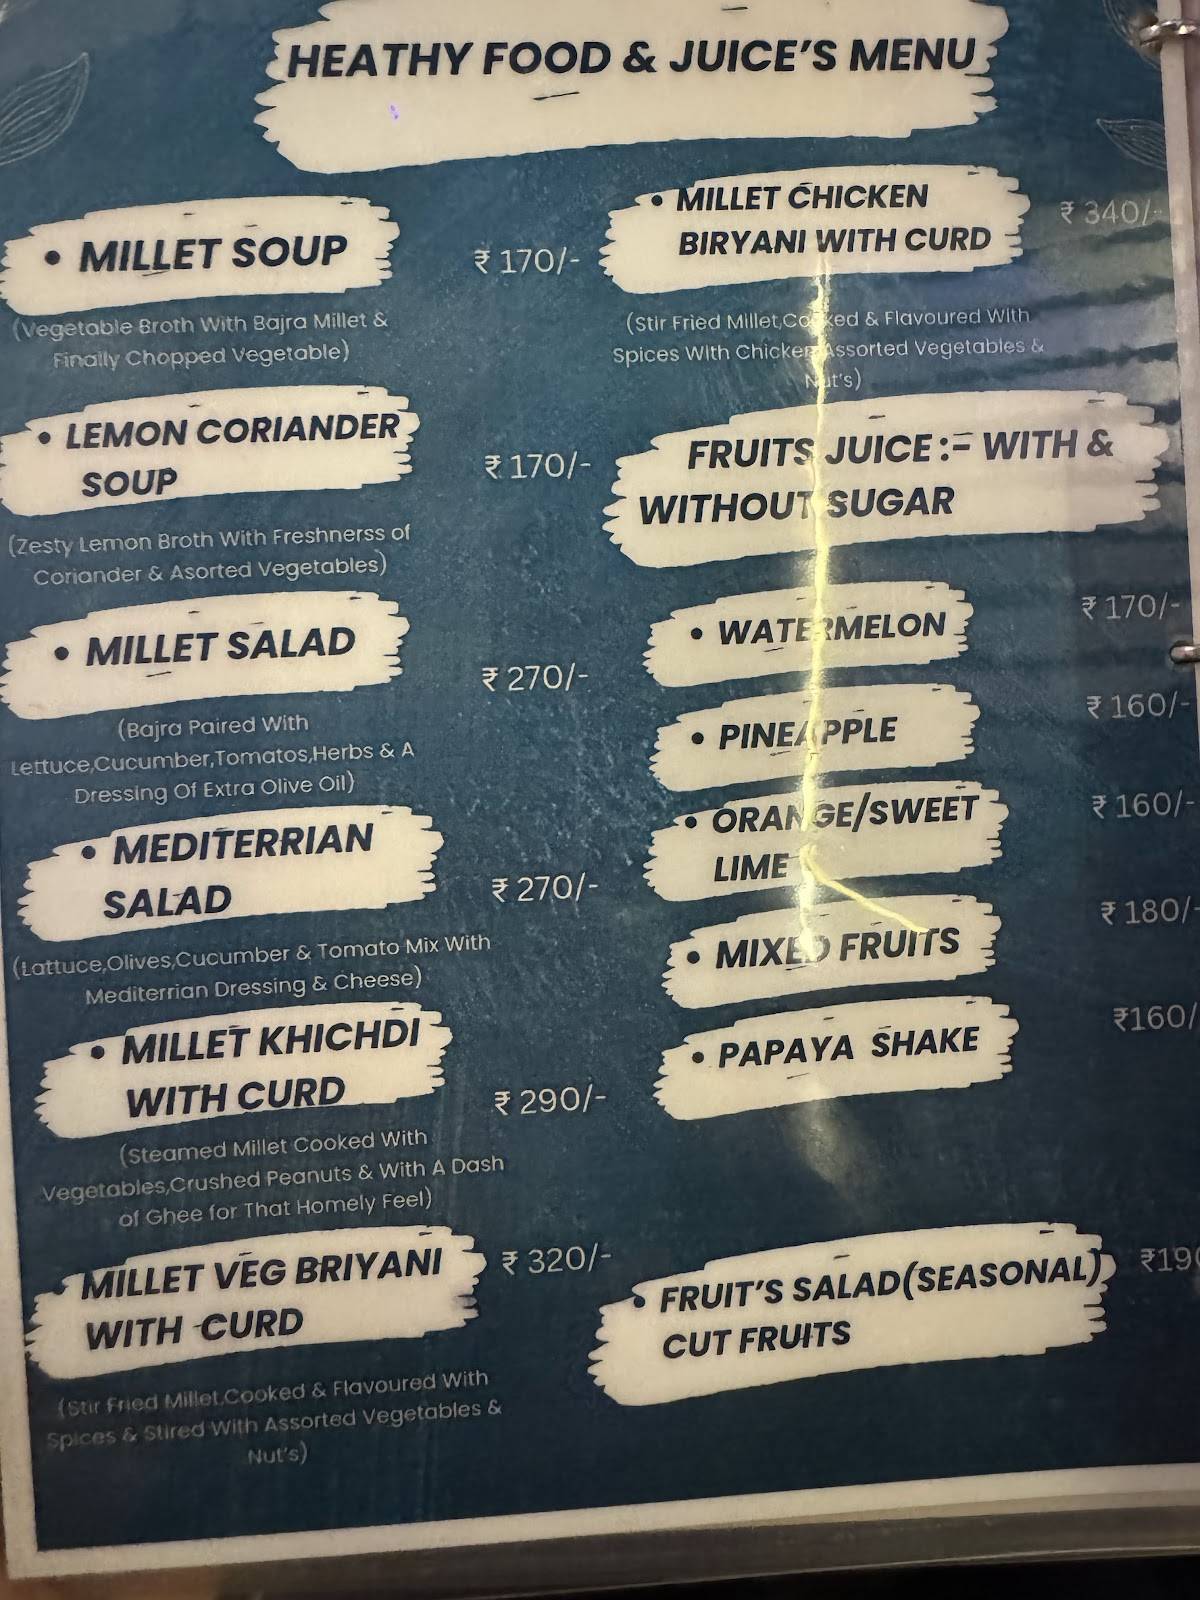 HEATHY FOOD & JUICE'S MENU
• MILLET SOUP ₹ 170/-
(Vegetable Broth With Bajra Millet &
Finally Chopped Vegetable)
• LEMON CORIANDER
SOUP ₹ 170/-
(Zesty Lemon Broth With Freshnerss of
Coriander & Asorted Vegetables)
• MILLET SALAD ₹ 270/-
(Bajra Paired With
Lettuce,Cucumber,Tomatos,Herbs & A
Dressing Of Extra Olive Oil)
• MEDITERRIAN
SALAD ₹ 270/-
(Lattuce,Olives,Cucumber & Tomato Mix With
Mediterrian Dressing & Cheese)
• MILLET KHICHDI
WITH CURD ₹ 290/-
(Steamed Millet Cooked With
Vegetables,Crushed Peanuts & With A Dash
of Ghee for That Homely Feel)
• MILLET VEG BRIYANI ₹ 320/-
WITH CURD
(Stir Fried Millet,Cooked & Flavoured With
Spices & Stired With Assorted Vegetables &
Nut's)
• MILLET CHICKEN ₹ 340/-
BIRYANI WITH CURD
(Stir Fried Millet,Cooked & Flavoured With
Spices With Chicken,Assorted Vegetables &
Nut's)
FRUITS JUICE :- WITH &
WITHOUT SUGAR
• WATERMELON ₹ 170/-
• PINEAPPLE ₹ 160/-
• ORANGE/SWEET ₹ 160/-
LIME
• MIXED FRUITS ₹ 180/-
• PAPAYA SHAKE ₹160/
• FRUIT'S SALAD(SEASONAL) ₹190
CUT FRUITS